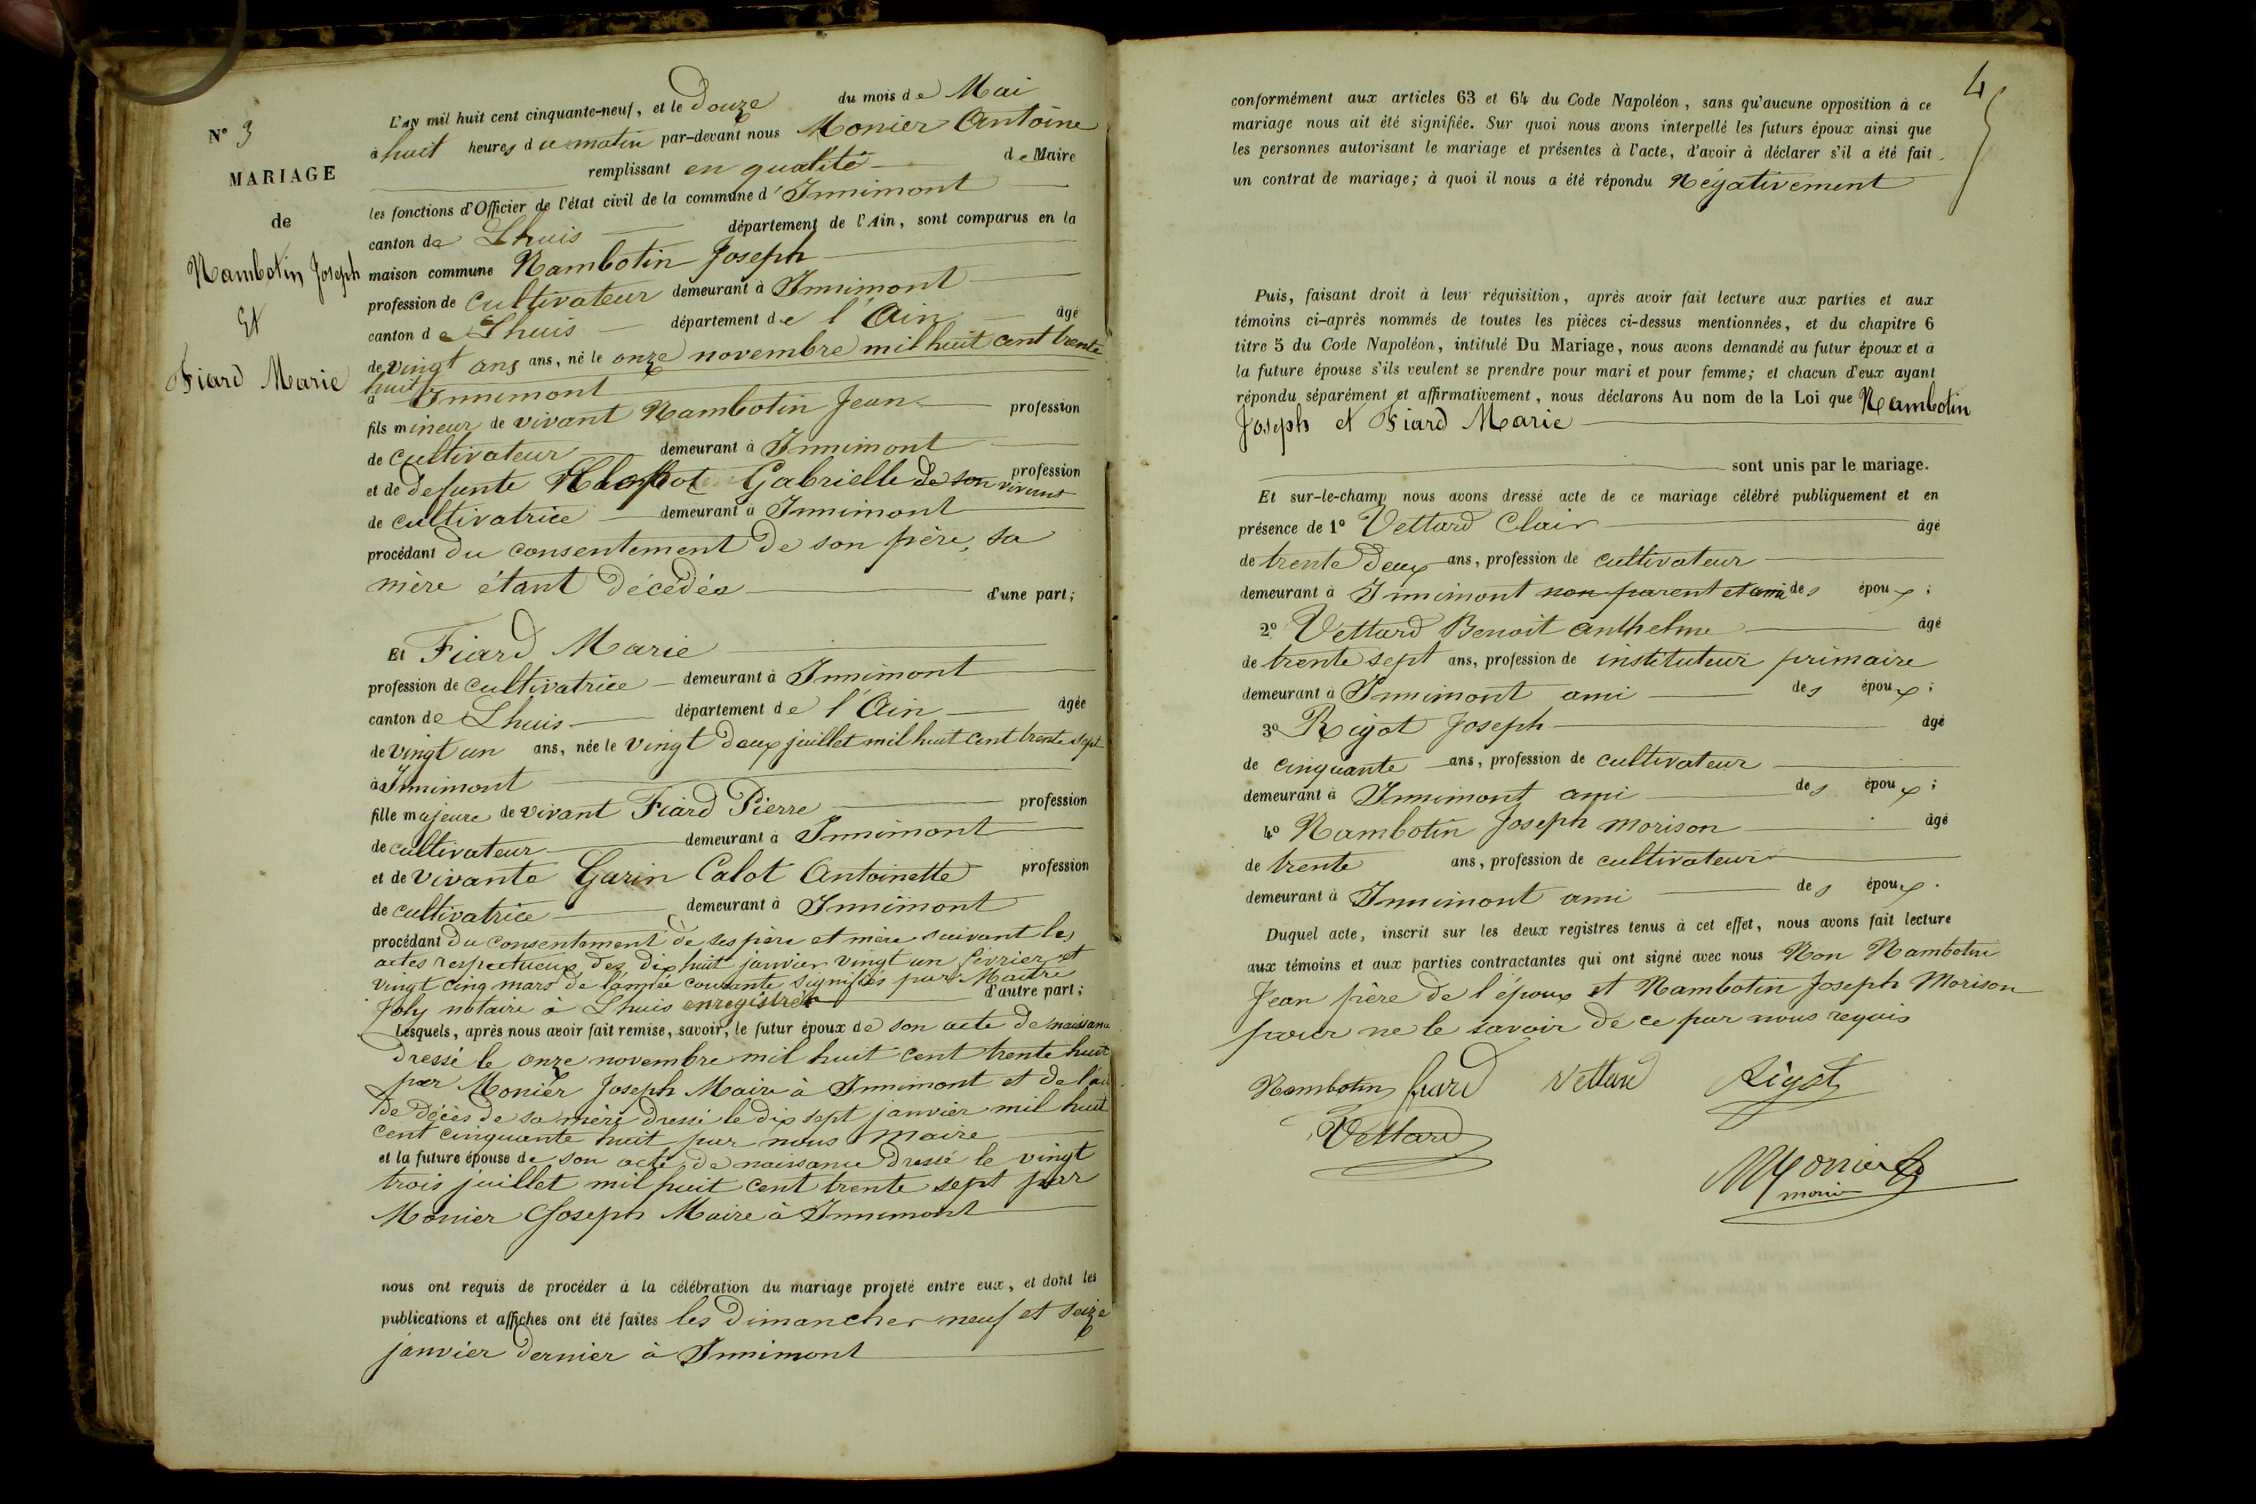 N° 3
MARIAGE
de
Nambotin Joseph
Et
Fiard Marie
L'AN mil huit cent cinquante-neuf, et le Douze du mois de Mai
à huit heures du matin par-devant nous Monier Antoine
remplissant en qualité de Maire
les fonctions d'Officier de l'état civil de la commune d'Innimont
canton de Lhuis département de l'Ain, sont comparus en la
maison commune Nambotin Joseph
profession de cultivateur demeurant à Innimont
canton de Lhuis département de l'Ain âgé
de vingt ans ans, né le onze novembre mil huit cent trente
huit
à Innimont
fils mineur de vivant Nambotin Jean profession
de cultivateur demeurant à Innimont
et de defunte Gabrielle de son vivant profession
de cultivatrice demeurant à Innimont
procédant du consentement de son père, sa
mère étant décédée d'une part;
Et Fiard Marie
profession de cultivatrice demeurant à Innimont
canton de Lhuis département de l'Ain âgée
de vingt un ans, née le vingt deux juillet mil huit cent trente sept
à Innimont
fille majeure de vivant Fiard Pierre profession
de cultivateur demeurant à Innimont
et de vivante Garin Calot Antoinette profession
de cultivatrice demeurant à Innimont
procédant du consentement de ses père et mère suivant les
actes respectueux des dix huit janvier vingt un février et
vingt cinq mars de l'année courante signifiés par Maitre
Joly notaire à Lhuis enregistrés d'autre part;
Lesquels, après nous avoir fait remise, savoir, le futur époux de son acte de naissance
dressé le onze novembre mil huit cent trente huit
par Monier Joseph Maire à Innimont et de l'
de décès de sa mère dressé le dix sept janvier mil huit
cent cinquante huit par nous Maire
et la future épouse de son acte de naissance dressé le vingt
trois juillet mil huit cent trente sept par
Monier Joseph Maire à Innimont
nous ont requis de procéder à la célébration du mariage projeté entre eux, et dont les
publications et affiches ont été faites les dimanches neuf et seize
janvier dernier à Innimont
4
conformément aux articles 63 et 64 du Code Napoléon, sans qu'aucune opposition à ce
mariage nous ait été signifiée. Sur quoi nous avons interpellé les futurs époux ainsi que
les personnes autorisant le mariage et présentes à l'acte, d'avoir à déclarer s'il a été fait
un contrat de mariage; à quoi il nous a été répondu Négativement
Puis, faisant droit à leur réquisition, après avoir fait lecture aux parties et aux
témoins ci-après nommés de toutes les pièces ci-dessus mentionnées, et du chapitre 6
titre 5 du Code Napoléon, intitulé Du Mariage, nous avons demandé au futur époux et à
la future épouse s'ils veulent se prendre pour mari et pour femme; et chacun d'eux ayant
répondu séparément et affirmativement, nous déclarons Au nom de la Loi que Nambotin
Joseph et Fiard Marie
sont unis par le mariage.
Et sur-le-champ nous avons dressé acte de ce mariage célébré publiquement et en
présence de 1° Vettard Clair âgé
de trente deux ans, profession de cultivateur
demeurant à Innimont non parent et ami des époux;
2° Vettard Benoit anthelme âgé
de trente sept ans, profession de instituteur primaire
demeurant à Innimont ami des époux;
3° Rigot Joseph âgé
de cinquante ans, profession de cultivateur
demeurant à Innimont ami des époux;
4° Nambotin Joseph morison âgé
de trente ans, profession de cultivateur
demeurant à Innimont ami des époux.
Duquel acte, inscrit sur les deux registres tenus à cet effet, nous avons fait lecture
aux témoins et aux parties contractantes qui ont signé avec nous Non Nambotin
Jean père de l'époux et Nambotin Joseph Morison
pour ne le savoir de ce par nous requis
Nambotin fiard Vettard Rigot
Vettard
Monier